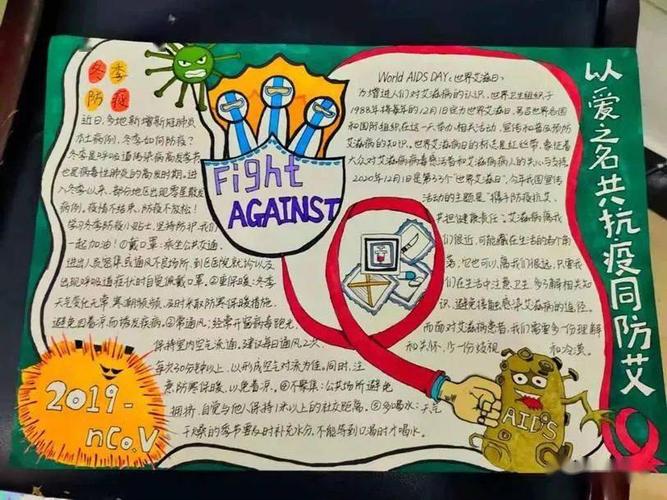 冬季
防疫
近日,多地新增新冠肺炎
本土病例,冬季如何防疫?
冬季是呼吸道传染病高发季节
也是病毒性肺炎的高发时期。进
入冬季以来,部分地区出现零星散发
病例。疫情不结束,防疫不放松!
学习冬季防疫小贴士,坚持防护,我们
一起加油!①戴口罩:乘坐公共交通、
进出人员密集或通风不良场所、到医院就诊以及
出现呼吸道症状时自觉佩戴口罩。②重保暖:冬季
天气变化无常,寒潮频频,及时采取防寒保暖措施,
避免因着凉而诱发疾病。③常通风:经常开窗病毒跑光,
保持室内空气流通,建议每日通风2次,
每次30分钟以上,以形成空气对流为佳。同时,注
意防寒保暖,以免着凉。④不聚集:公共场所避免
拥挤,自觉与他人保持1米以上的社交距离。⑤多喝水:天气
干燥的季节要及时补充水分,不能等到口渴时才喝水。
2019-
nCoV
Fight
AGAINST
World AIDS DAY:(世界艾滋日):
为增进人们对艾滋病的认识,世界卫生组织于
1988年将每年的12月1日定为世界艾滋日,号召世界各国
和国际组织在这一天举办相关活动,宣传和普及预防
艾滋病的知识。世界艾滋病日的标志是红丝带,象征着
大众对艾滋病病毒感染者和艾滋病病人的关心与支持
2020年12月1日是第33个"世界艾滋日",今年我国宣传
活动的主题是"携手防疫抗艾,
共担健康责任",艾滋病离我
们很近,可能藏在生活的各个角
落,它也可以离我们很远,只要我
们在生活中注意卫生,多了解相关知
识,避免接触感染艾滋病的途径。
而面对艾滋病患者,我们需要多一份理解
和关怀,少一份歧视
和冷漠。
AIDS
以爱之名共抗疫同防艾